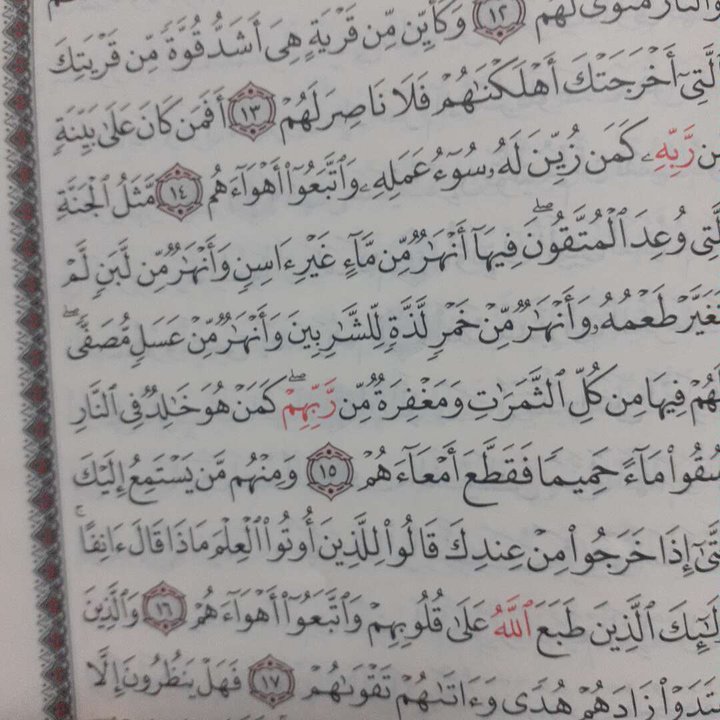 وَالنَّارُ مَثْوًى لَّهُمْ ١٢ وَكَأَيِّن مِّن قَرْيَةٍ هِىَ أَشَدُّ قُوَّةً مِّن قَرْيَتِكَ
ٱلَّتِىٓ أَخْرَجَتْكَ أَهْلَكْنَـٰهُمْ فَلَا نَاصِرَ لَهُمْ ١٣ أَفَمَن كَانَ عَلَىٰ بَيِّنَةٍ
مِّن رَّبِّهِۦ كَمَن زُيِّنَ لَهُۥ سُوٓءُ عَمَلِهِۦ وَٱتَّبَعُوٓا۟ أَهْوَآءَهُم ١٤ مَّثَلُ ٱلْجَنَّةِ
ٱلَّتِى وُعِدَ ٱلْمُتَّقُونَ ۖ فِيهَآ أَنْهَـٰرٌ مِّن مَّآءٍ غَيْرِ ءَاسِنٍ وَأَنْهَـٰرٌ مِّن لَّبَنٍ لَّمْ
يَتَغَيَّرْ طَعْمُهُۥ وَأَنْهَـٰرٌ مِّنْ خَمْرٍ لَّذَّةٍ لِّلشَّـٰرِبِينَ وَأَنْهَـٰرٌ مِّنْ عَسَلٍ مُّصَفًّى ۖ
وَلَهُمْ فِيهَا مِن كُلِّ ٱلثَّمَرَٰتِ وَمَغْفِرَةٌ مِّن رَّبِّهِمْ ۖ كَمَنْ هُوَ خَـٰلِدٌ فِى ٱلنَّارِ
وَسُقُوا۟ مَآءً حَمِيمًا فَقَطَّعَ أَمْعَآءَهُمْ ١٥ وَمِنْهُم مَّن يَسْتَمِعُ إِلَيْكَ
حَتَّىٰٓ إِذَا خَرَجُوا۟ مِنْ عِندِكَ قَالُوا۟ لِلَّذِينَ أُوتُوا۟ ٱلْعِلْمَ مَاذَا قَالَ ءَانِفًا ۚ
أُو۟لَـٰٓئِكَ ٱلَّذِينَ طَبَعَ ٱللَّهُ عَلَىٰ قُلُوبِهِمْ وَٱتَّبَعُوٓا۟ أَهْوَآءَهُمْ ١٦ وَٱلَّذِينَ
ٱهْتَدَوْا۟ زَادَهُمْ هُدًى وَءَاتَىٰهُمْ تَقْوَىٰهُمْ ١٧ فَهَلْ يَنظُرُونَ إِلَّا